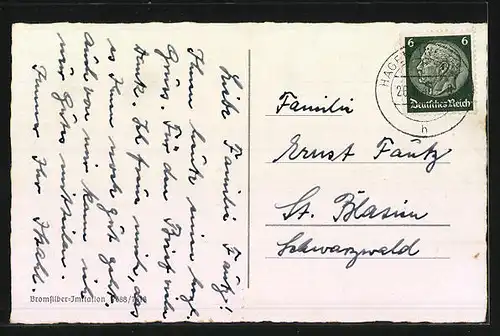 Liebe Familie Fautz!
Ihnen heute einen herzl.
Gruss. Für den Brief viel
Dank. Ich freue mich, dass
es Ihnen noch gut geht,
auch von mir kann ich
nur Gutes mitteilen.
Immer Ihr
Bromsilber-Imitation
6 6
Deutsches Reich
HAGE
h
Familie
Ernst Fautz
St. Blasien
Schwarzwald